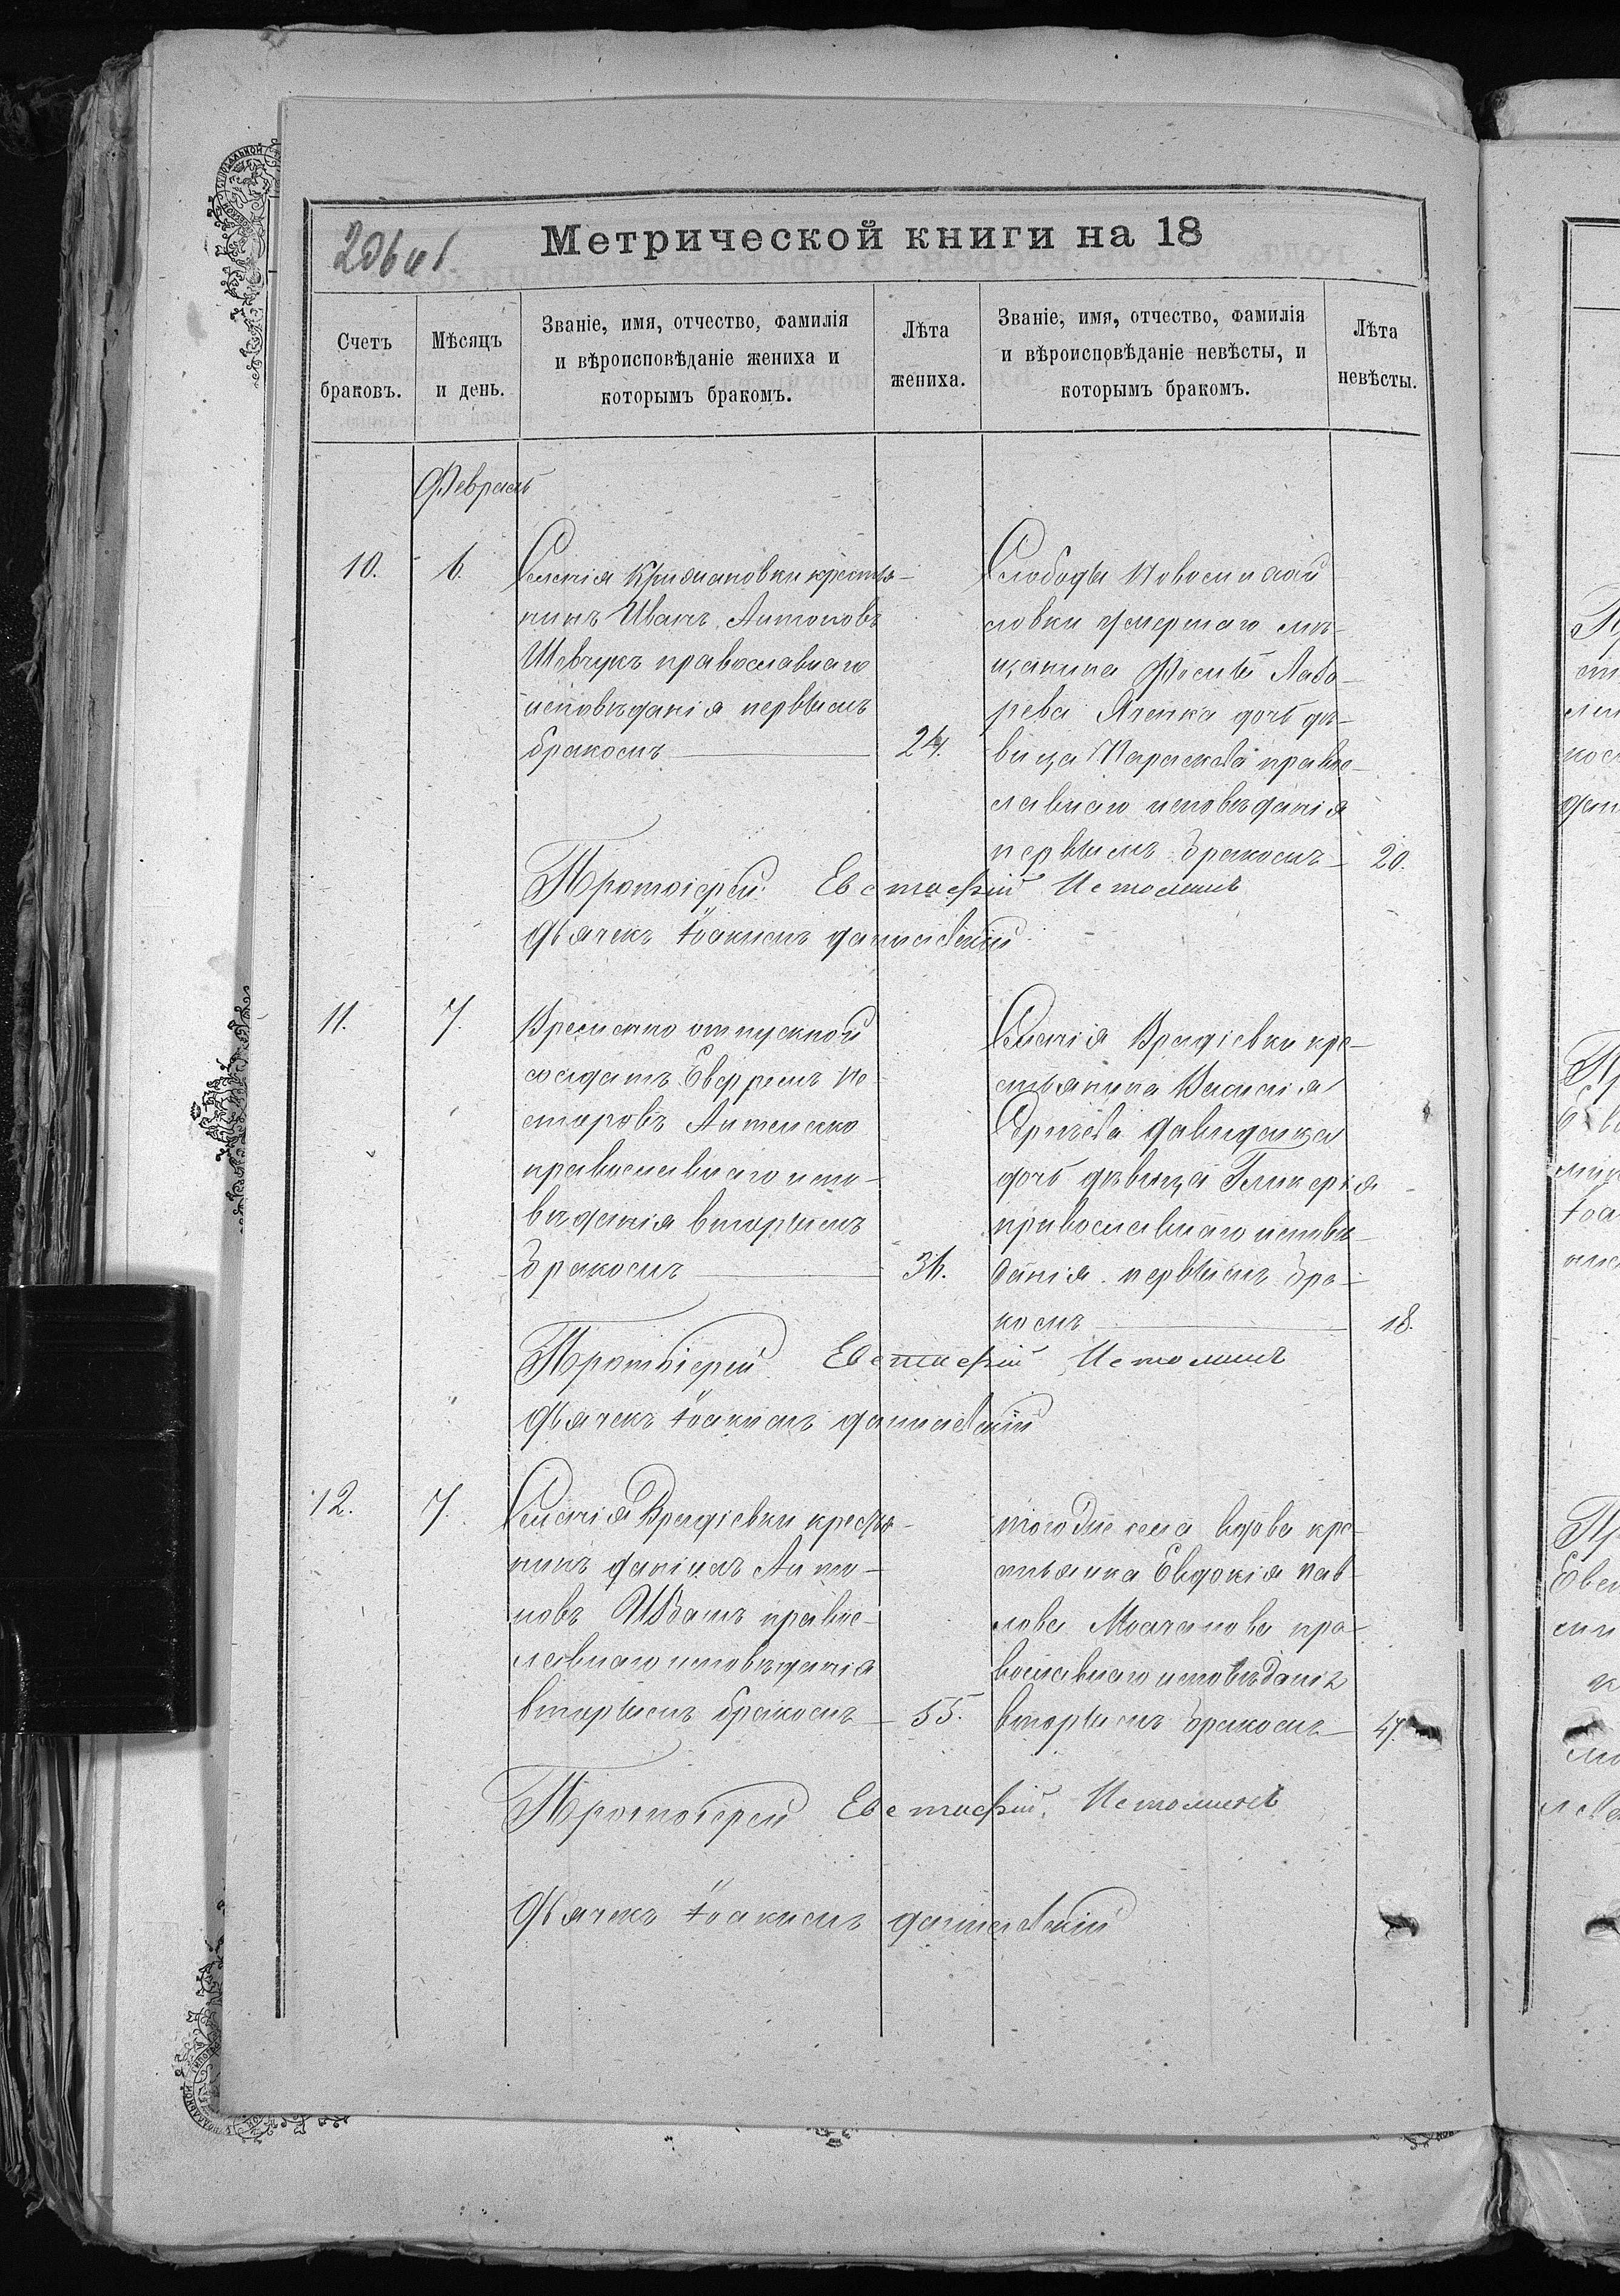 Метрической книги на 18
Счетъ браковъ.
Мѣсяцъ и день.
Званіе, имя, отчество, фамилія
и вѣроисповѣданіе жениха и
которымъ бракомъ.
Лѣта жениха.
Званіе, имя, отчество, фамилія
и вѣроисповѣданіе невѣсты, и
которымъ бракомъ.
Лѣта невѣсты.
Февраль
10.
6.
Селенія крестья-
нинъ Иванъ Антоновъ
Шевчукъ православнаго
исповѣданія первымъ
бракомъ
24.
Слободы
ловки умершаго мѣ-
щанина Лаза-
рева дочь дѣ-
вица Параскева право-
славнаго исповѣданія
первымъ бракомъ
20.
Протоіерей Евстафій Истоминъ
Дьячекъ Іоакимъ
11.
7.
Временно отпускной
солдатъ Не-
старовъ
православнаго испо-
вѣданія вторымъ
бракомъ
36.
Селенія Врадіевки кре-
стьянина Василія
Сергѣева Давиденка
дочь дѣвица Гликерія
православнаго исповѣ-
данія первымъ бра-
комъ
18.
Протоіерей Евстафій Истоминъ
Дьячекъ Іоакимъ
12.
7.
Селенія Врадіевки крестья-
нинъ Даніилъ Анто-
новъ право-
славнаго исповѣданія
вторымъ бракомъ
55.
того же села вдова кре-
стьянка Евдокія Пав-
лова Молчанова пра-
вославнаго исповѣданія
вторымъ бракомъ
47.
Протоіерей Евстафій Истоминъ
Дьячекъ Іоакимъ